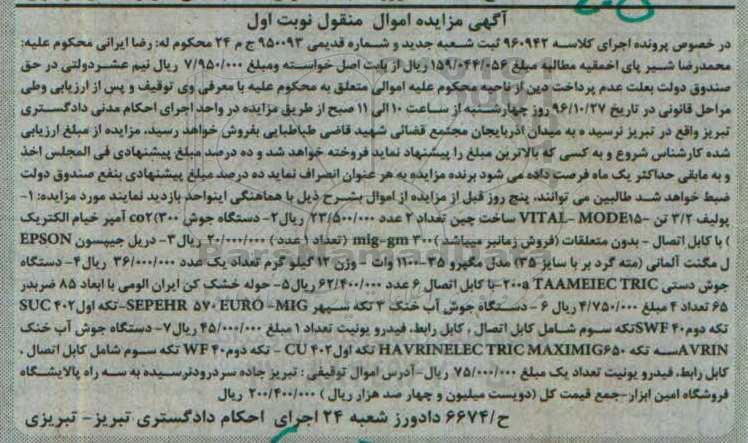 آگهی مزایده اموال منقول نوبت اول
در خصوص پرونده اجرای کلاسه ۹۶۰۹۴۲ ثبت شعبه جدید و شماره قدیمی ۹۵۰۰۹۳ ج م ۲۴ محکوم له: رضا ایرانی محکوم علیه:
محمدرضا شیر پای اخمقیه مطالبه مبلغ ۱۵۹/۰۴۴/۰۵۶ ریال از بابت اصل خواسته ومبلغ ۷/۹۵۰/۰۰۰ ریال نیم عشردولتی در حق
صندوق دولت بعلت عدم پرداخت دین از ناحیه محکوم علیه اموالی متعلق به محکوم علیه با معرفی وی توقیف و پس از ارزیابی وطی
مراحل قانونی در تاریخ ۹۶/۱۰/۲۷ روز چهارشنبه از ساعت ۱۰ الی ۱۱ صبح از طریق مزایده در واحد اجرای احکام مدنی دادگستری
تبریز واقع در تبریز نرسیده به میدان آذربایجان مجتمع قضائی شهید قاضی طباطبایی بفروش خواهد رسید، مزایده از مبلغ ارزیابی
شده کارشناس شروع و به کسی که بالاترین مبلغ را پیشنهاد نماید فروخته خواهد شد و ده درصد مبلغ پیشنهادی فی المجلس اخذ
و به مابقی حداکثر یک ماه فرصت داده می شود برنده مزایده به هر عنوان انصراف نماید ده درصد مبلغ پیشنهادی بنفع صندوق دولت
ضبط خواهد شد. طالبین می توانند، پنج روز قبل از مزایده از اموال بشرح ذیل با هماهنگی اینواحد بازدید نمایند مورد مزایده: ۱-
پولیف ۲/۲ تن -VITAL- MODE۱۵ ساخت چین تعداد ۲ عدد ۲۳/۵۰۰/۰۰۰ ریال۲- دستگاه جوش co۲(۳۰۰ آمپر خیام الکتریک
) با کابل اتصال - بدون متعلقات (فروش زمانبر میباشد )۳۰۰ mig-gm (تعداد ۱عدد) ۲۰/۰۰۰/۰۰۰ ریال۳- دریل جیبسون EPSON
ل مگنت آلمانی (مته گرد بر با سایز ۳۵) مدل مگپرو ۳۵-۱۱۰۰ وات - وزن ۱۲ کیلو گرم تعداد یک عدد ۳۶/۰۰۰/۰۰۰ ریال۴- دستگاه
جوش دستی ۲۰۰a TAAMEIEC TRIC-با کابل اتصال ۶ عدد ۶۲/۴۰۰/۰۰۰ریال۵- حوله خشک کن ایران الومی با ابعاد ۸۵ ضربدر
۶۵ تعداد ۴ مبلغ ۴/۷۵۰/۰۰۰ ریال ۶ - دستگاه جوش آب خنک ۳ تکه سپهر SEPEHR ۵۷۰ EURO -MIG-تکه اول۴۰۲ SUC
تکه دوم۴۰ SWFتکه سوم شامل کابل اتصال ، کابل رابط، فیدرو یونیت تعداد ۱ مبلغ ۴۵/۰۰۰/۰۰۰ ریال۷- دستگاه جوش آب خنک
AVRINسه تکه HAVRINELEC TRIC MAXIMIG۶۵۰ تکه اول۴۰۲ CU - تکه دوم۴۰ WF تکه سوم شامل کابل اتصال ،
کابل رابط، فیدرو یونیت تعداد یک مبلغ ۷۵/۰۰۰/۰۰۰ ریال-آدرس اموال توقیفی : تبریز جاده سردرودنرسیده به سه راه پالایشگاه
فروشگاه امین ابزار-جمع قیمت کل (دویست میلیون و چهار صد هزار ریال ) ۲۰۰/۴۰۰/۰۰۰ ریال
ح/۶۶۷۴ دادورز شعبه ۲۴ اجرای احکام دادگستری تبریز- تبریزی